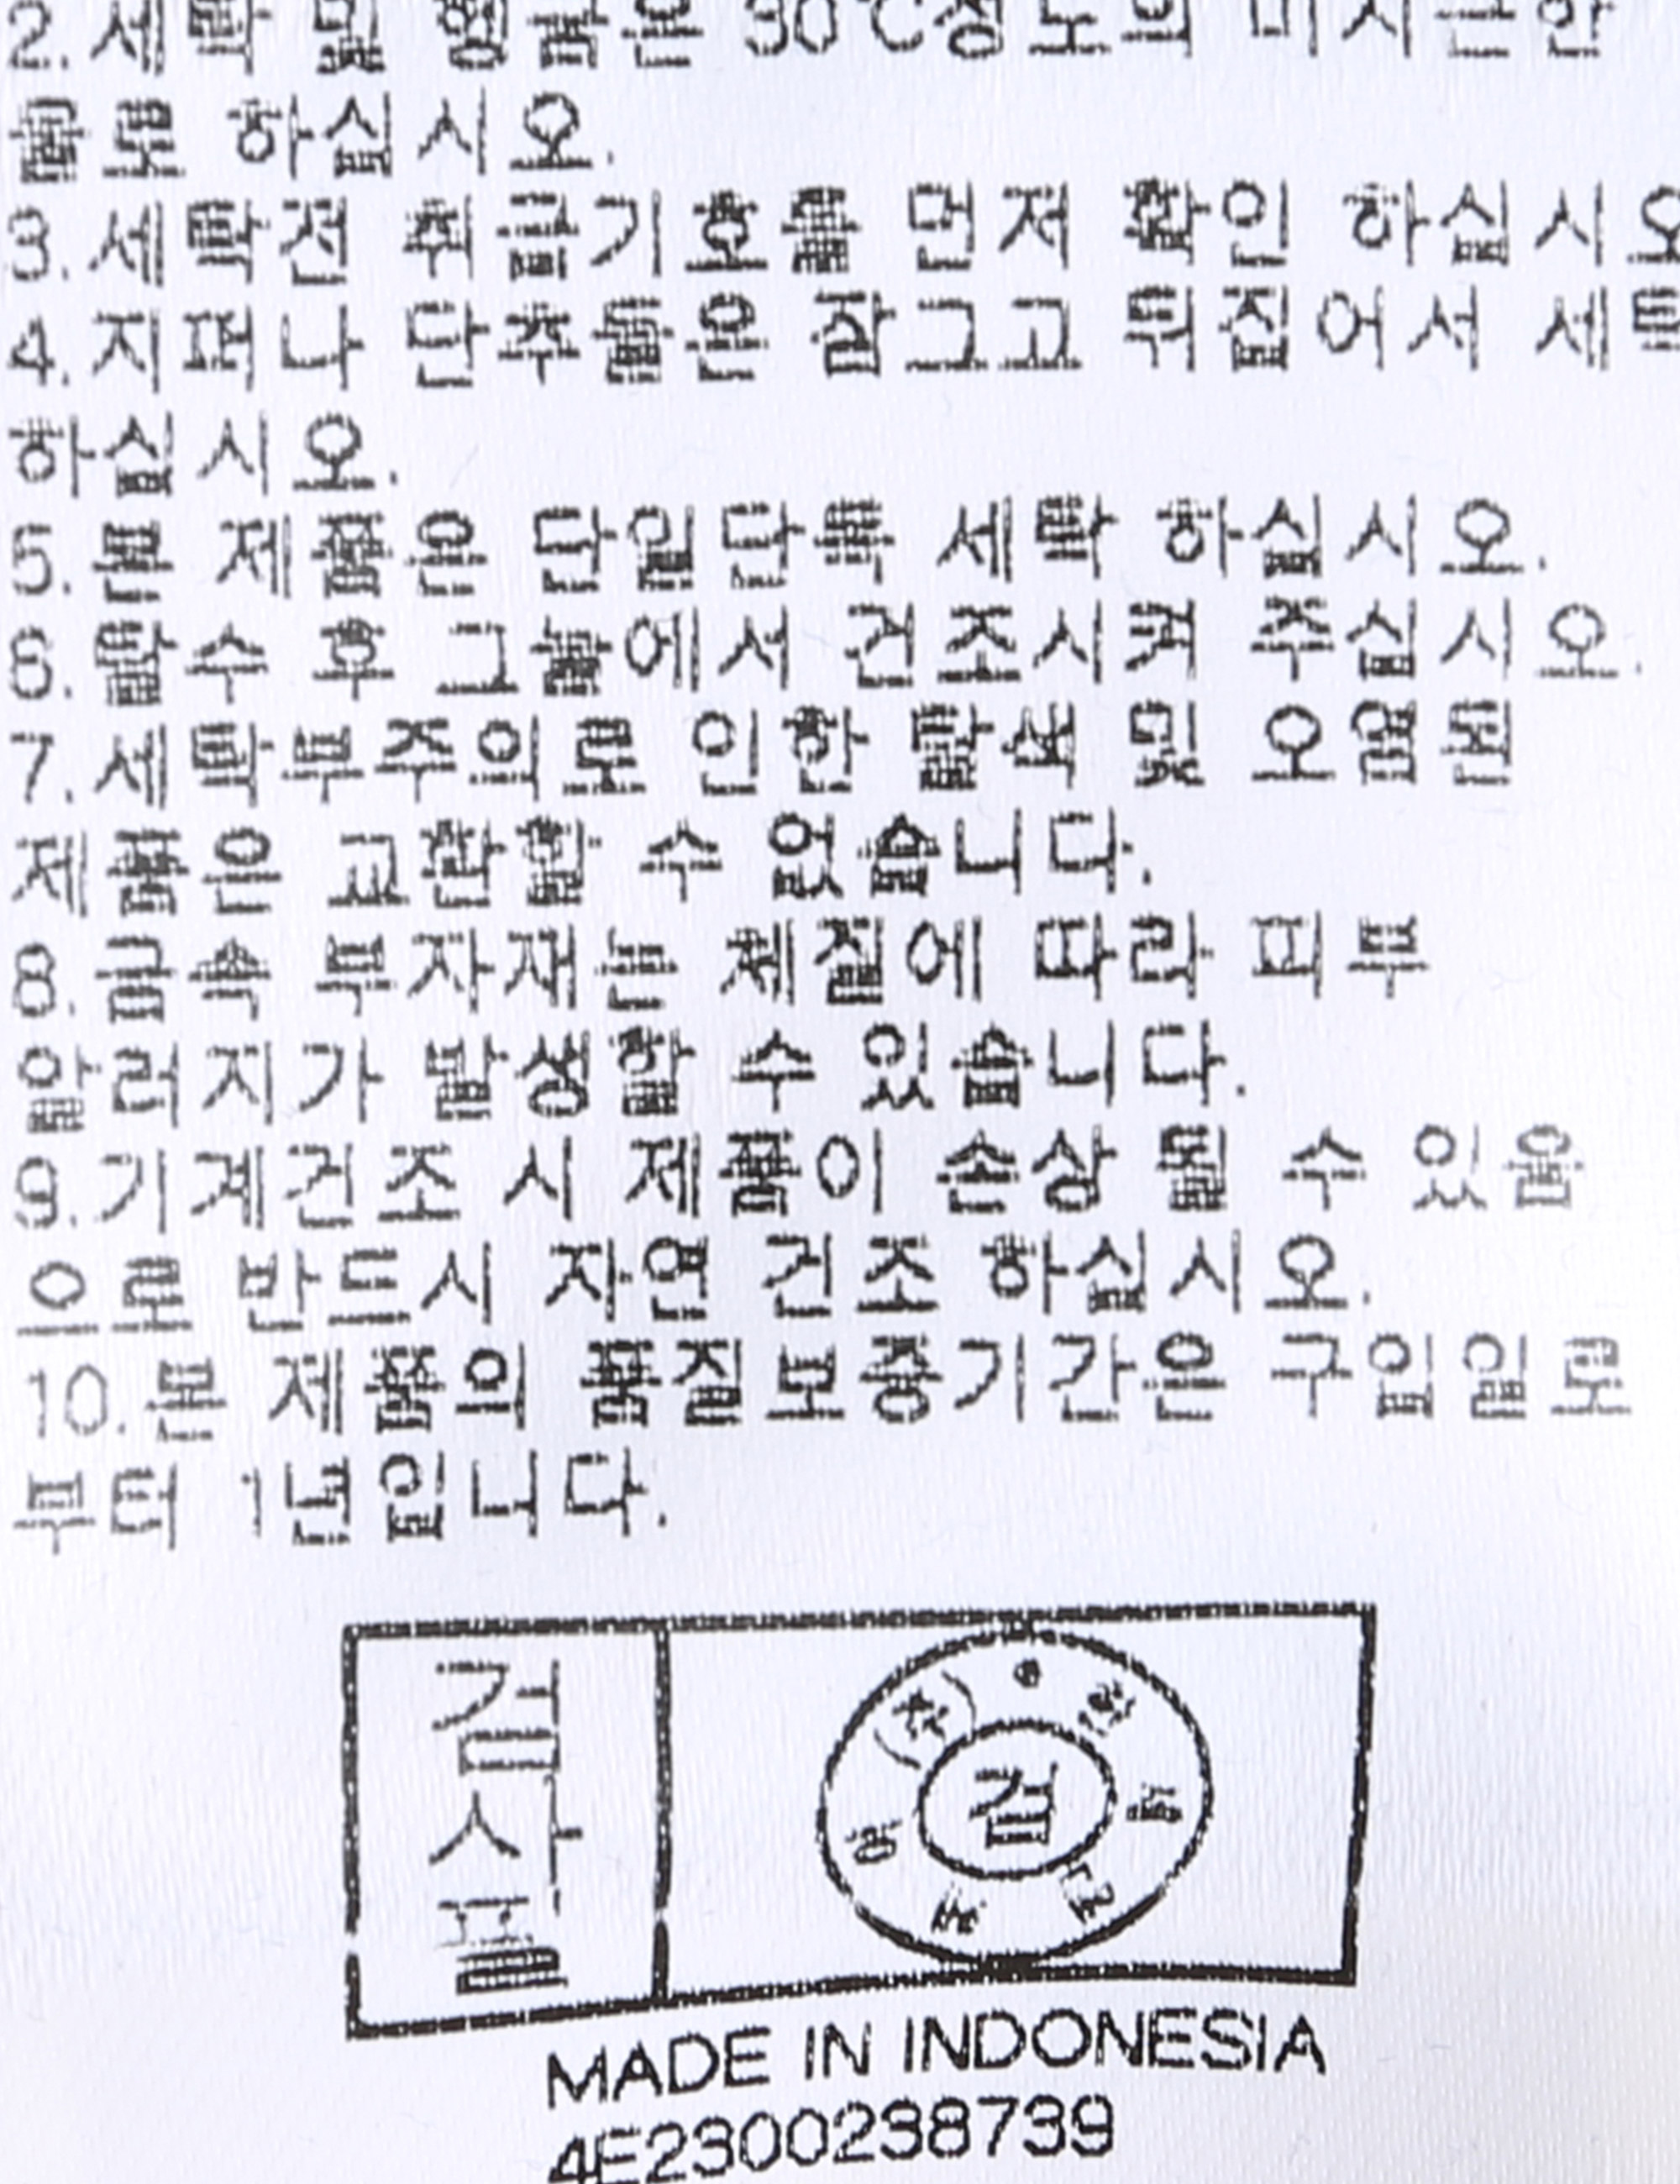 2. 세탁 및 헹굼은 30℃정도의 미지근한
물로 하십시오.
3. 세탁전 취급기호를 먼저 확인 하십시오
4. 지퍼나 단추들은 잠그고 뒤집어서 세탁
하십시오.
5. 본 제품은 단일단독 세탁 하십시오.
6. 탈수 후 그늘에서 건조시켜 주십시오.
7. 세탁부주의로 인한 탈색 및 오염된
제품은 교환할 수 없습니다.
8. 금속 부자재는 체질에 따라 피부
알러지가 발생할 수 있습니다.
9. 기계건조 시 제품이 손상 될 수 있음
으로 반드시 자연 건조 하십시오.
10. 본 제품의 품질보증기간은 구입일로
부터 1년입니다.
검
사
필
(주)
검
MADE IN INDONESIA
4E2300238739